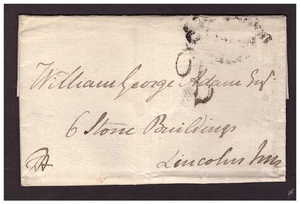 William George Adam Esqr
6 Stone Buildings
Lincolns Inn